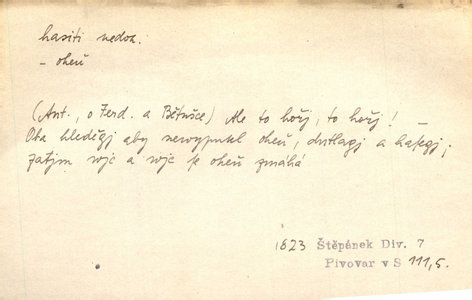 hasiti nedok.
- oheň
(Ant., o Ferd. a Bětušce) Ale to hořj, to hořj! –
Oba hleděgj aby newypukl oheň, a hasegj;
zatjm wjc a wjc se oheň zmáhá
1823 Štěpánek Div. 7
Pivovar v S 111,5.